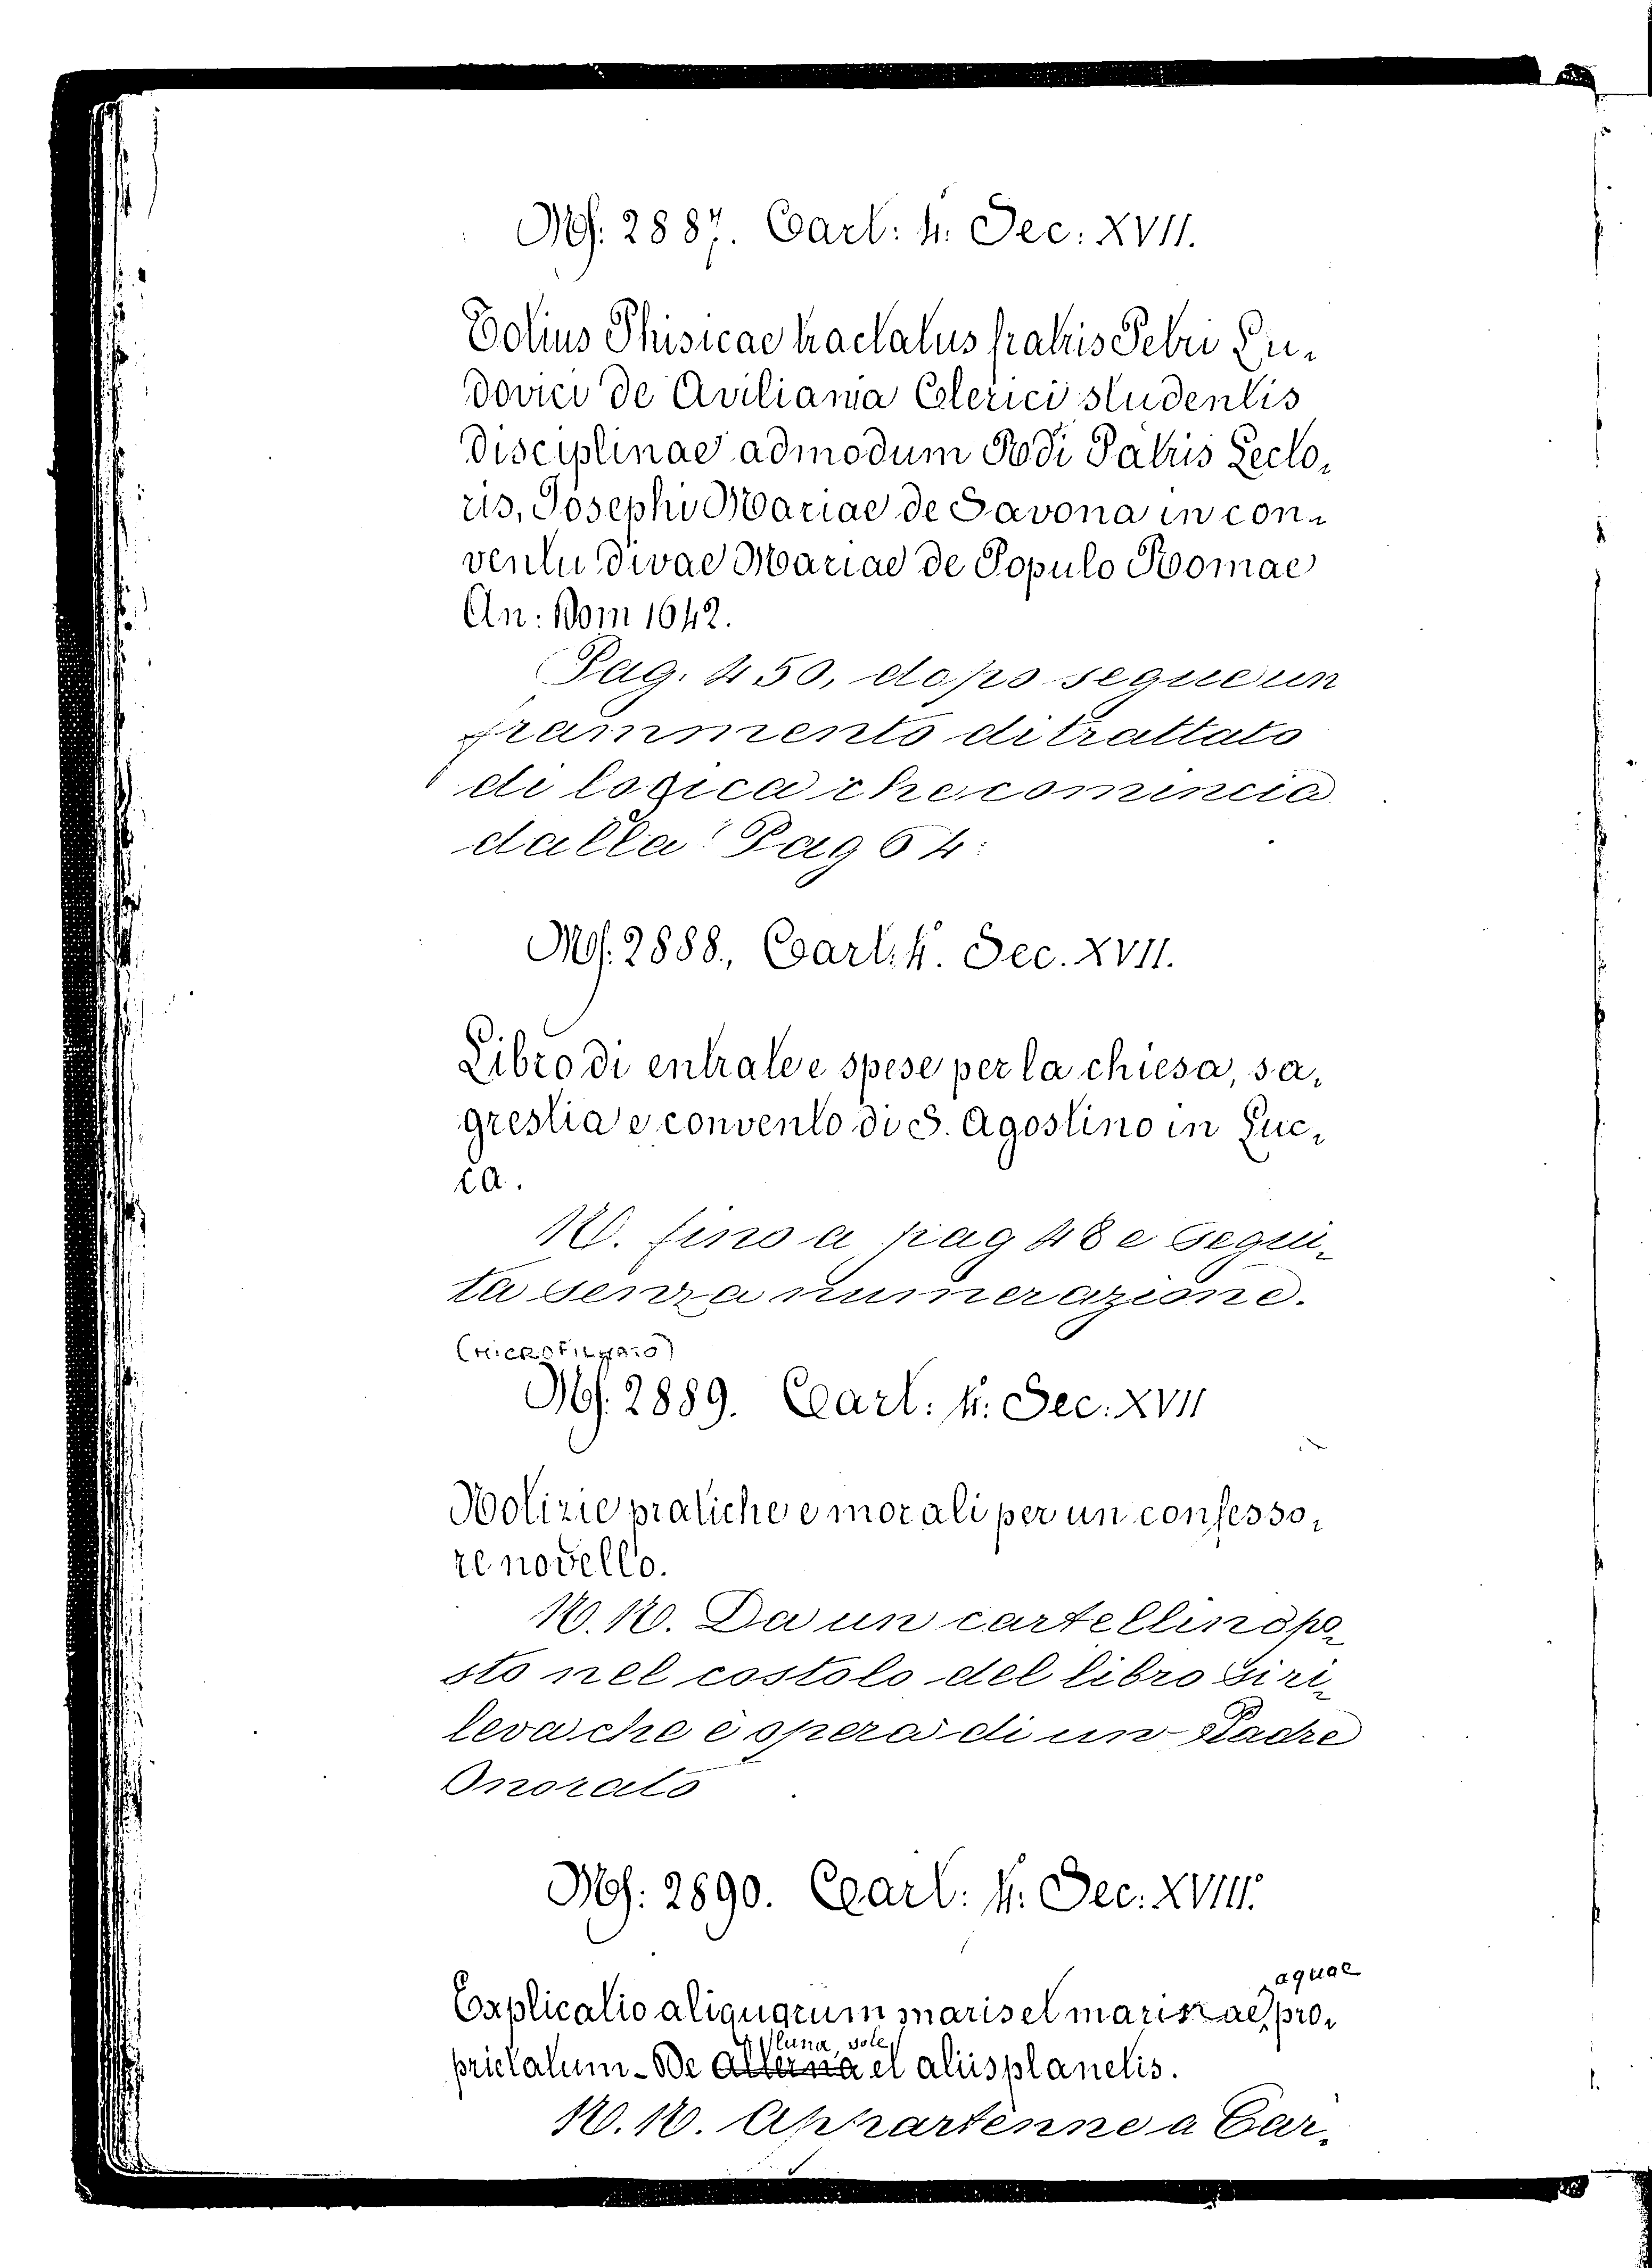 Ms. 2887. Cart: 4. Sec: XVII.
Totius Phisicae tractatus fratris Petri Lu-
dovici de Aviliania Clerici studentis
disciplinae admodum Rdi Patris Lecto-
ris, Josephi Mariae de Savona in con-
ventu divae Mariae de Populo Romae
An: Dom 1642.
Pag. 450, dopo segue un
frammento di trattato
di logica che comincia
dalla Pag 64:
Ms. 2888, Cart. 4. Sec. XVII.
Libro di entrate e spese per la chiesa, sa-
grestia e convento di S. Agostino in Luc-
ca.
N. fino a pag 48 e segui-
ta senza numerazione.
(MICROFILMATO)
Ms. 2889. Cart: 4. Sec: XVII
Notizie pratiche e morali per un confesso-
re novello.
N.N. Da un cartellino po-
sto nel costolo del libro si ri-
leva che è opera di un Padre
Onorato
Ms: 2890. Cart: 4. Sec: XVIII.
aquae
Explicatio aliquorum maris et marinae pro-
luna, sole,
prietatum - De alterna et aliis planetis.
N.N. Appartenne a Car-